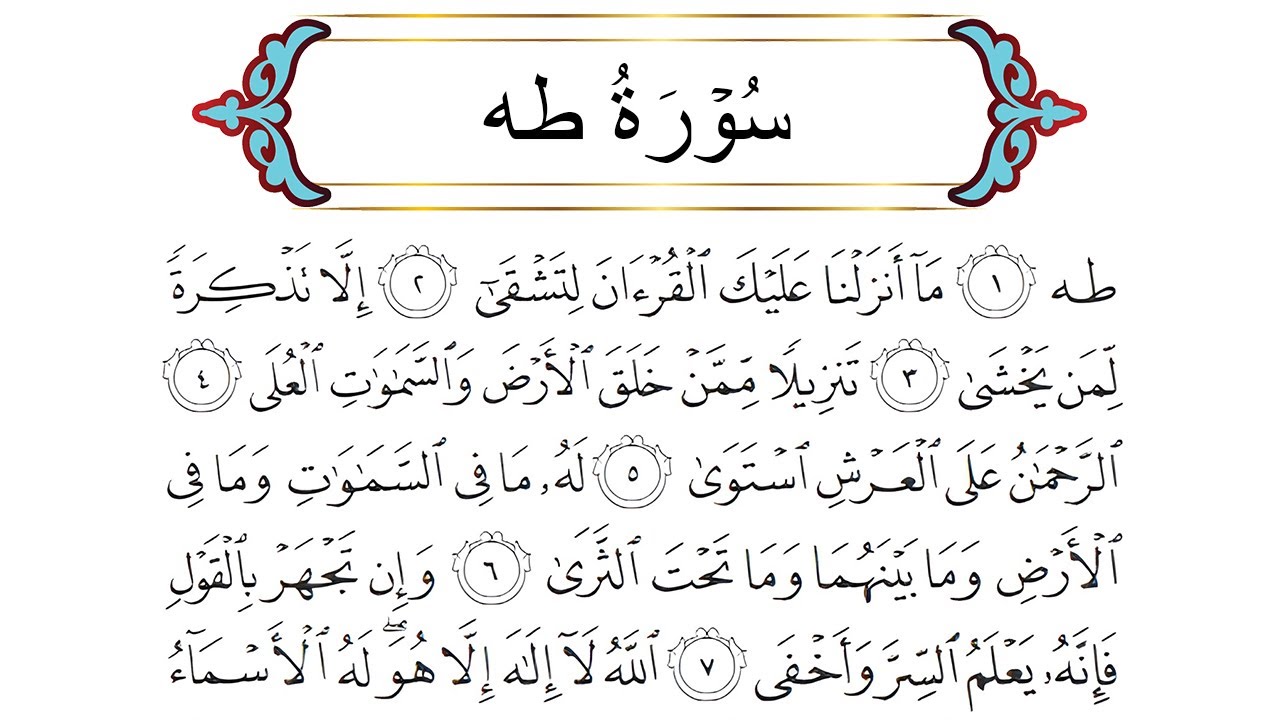 سُوْرَةُ طه
طه ١ مَآ أَنزَلْنَا عَلَيْكَ ٱلْقُرْءَانَ لِتَشْقَىٰٓ ٢ إِلَّا تَذْكِرَةً
لِّمَن يَخْشَىٰ ٣ تَنزِيلًا مِّمَّنْ خَلَقَ ٱلْأَرْضَ وَٱلسَّمَٰوَٰتِ ٱلْعُلَى ٤
ٱلرَّحْمَٰنُ عَلَى ٱلْعَرْشِ ٱسْتَوَىٰ ٥ لَهُۥ مَا فِى ٱلسَّمَٰوَٰتِ وَمَا فِى
ٱلْأَرْضِ وَمَا بَيْنَهُمَا وَمَا تَحْتَ ٱلثَّرَىٰ ٦ وَإِن تَجْهَرْ بِٱلْقَوْلِ
فَإِنَّهُۥ يَعْلَمُ ٱلسِّرَّ وَأَخْفَى ٧ ٱللَّهُ لَآ إِلَٰهَ إِلَّا هُوَ ۖ لَهُ ٱلْأَسْمَآءُ